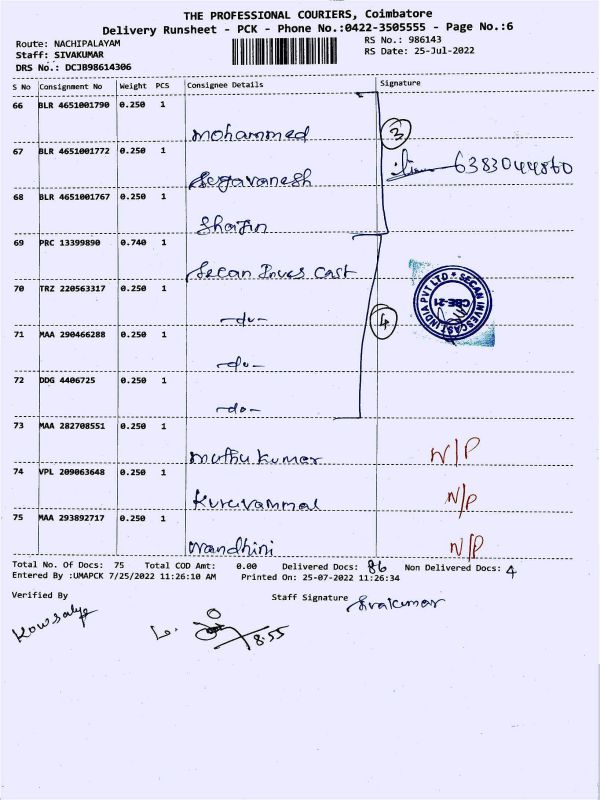 THE PROFESSIONAL COURIERS, Coimbatore
Delivery Runsheet - PCK - Phone No.:0422-3505555 - Page No.:6
Route: NACHIPALAYAM RS No.: 986143
Staff: SIVAKUMAR RS Date: 25-Jul-2022
DRS No.: DCJB98614306
S No Consignment No Weight PCS Consignee Details Signature
66 BLR 4651001790 0.250 1
mohammed 3
67 BLR 4651001772 0.250 1
6383044860
68 BLR 4651001767 0.250 1
69 PRC 13399890 0.740 1
Secan Inves Cast
70 TRZ 220563317 0.250 1
-do- 4
SECAN INVESCAST INDIA PVT LTD * CBE-21
71 MAA 290466288 0.250 1
-do-
72 DDG 4406725 0.250 1
-do-
73 MAA 282708551 0.250 1
muthu kumar N/P
74 VPL 209063648 0.250 1
N/P
75 MAA 293892717 0.250 1
Nandhini N/P
Total No. Of Docs: 75 Total COD Amt: 0.00 Delivered Docs: 86 Non Delivered Docs: 4
Entered By :UMAPCK 7/25/2022 11:26:10 AM Printed On: 25-07-2022 11:26:34
Verified By Staff Signature Sivakumar
Kowsalya
8:55